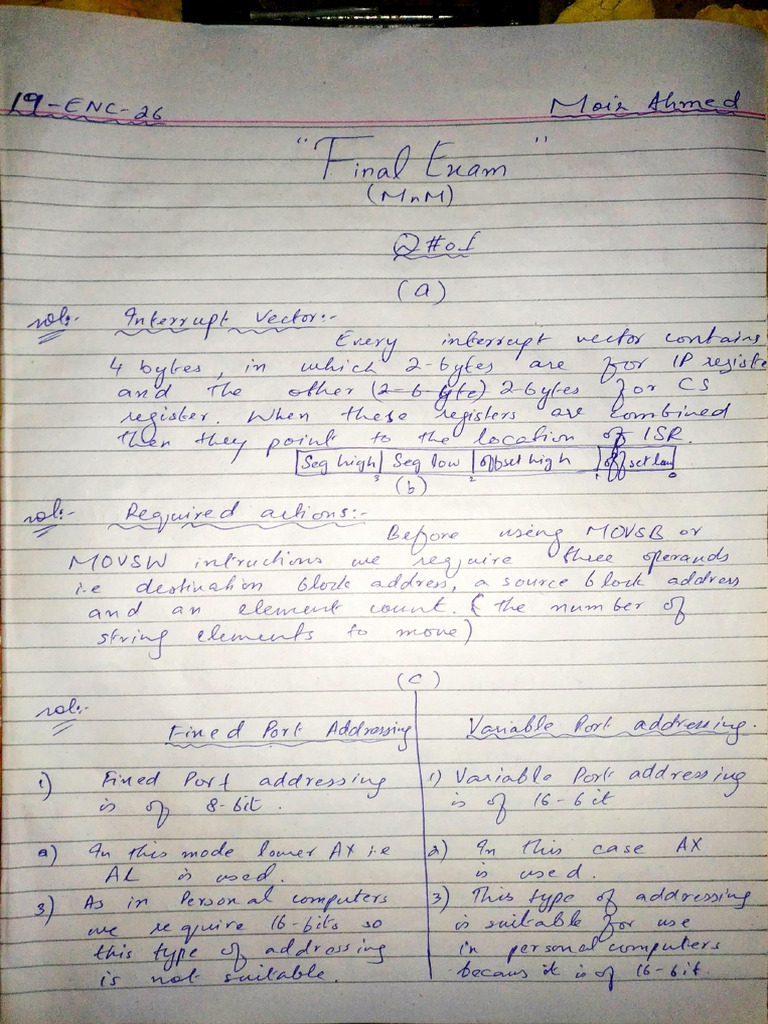 19-ENC-26 Moiz Ahmed
"Final Exam"
(MnM)
Q#01
(a)
sol:- Interrupt Vector:-
Every interrupt vector contains
4 bytes, in which 2-bytes are for IP registe
and the other (2-byte) 2-bytes for CS
register. When these registers are combined
then they point to the location of ISR.
Seg high Seg low offset high offset low
3 2 1 0
(b)
sol:- Required actions:-
Before using MOVSB or
MOVSW intructions we require three operands
i.e destination block address, a source block address
and an element count. (the number of
string elements to move)
(c)
sol:-
Fixed Port Addressing
1) Fixed Port addressing
is of 8-bit.
2) In this mode lower AX i.e
AL is used.
3) As in Personal computers
we require 16-bits so
this type of addressing
is not suitable.
Variable Port addressing.
1) Variable Port addressing
is of 16-bit
2) In this case AX
is used.
3) This type of addressing
is suitable for use
in personal computers
becaus it is of 16-bit.